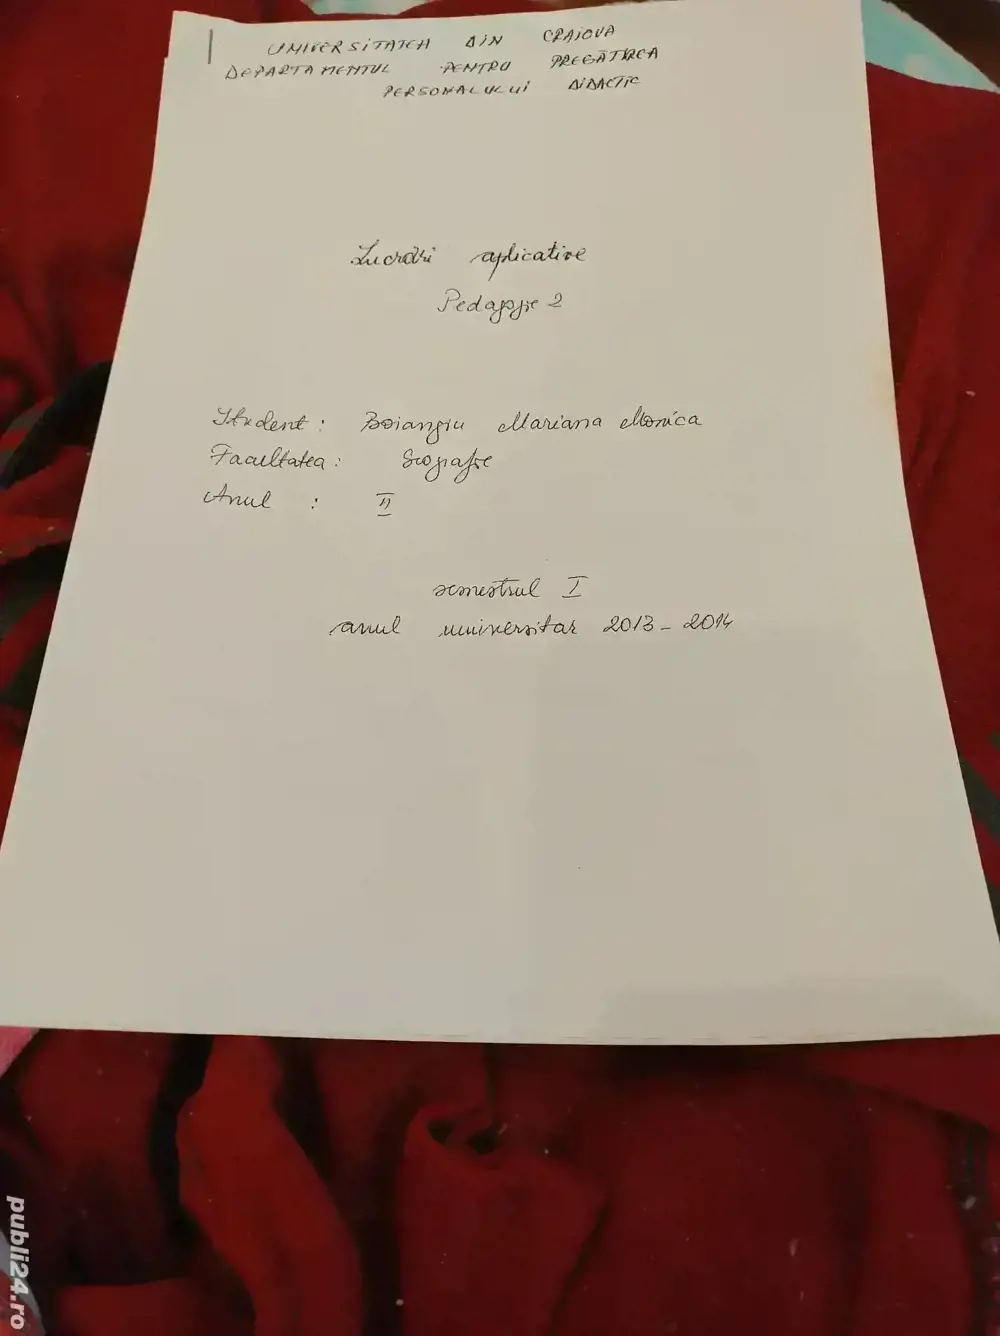 UNIVERSITATEA DIN CRAIOVA
DEPARTAMENTUL PENTRU PREGĂTIREA
PERSONALULUI DIDACTIC
Lucrări aplicative
Pedagogie 2
Student : Boiangiu Mariana Monica
Facultatea : Geografie
Anul : II
semestrul I
anul universitar 2013-2014
publi24.ro